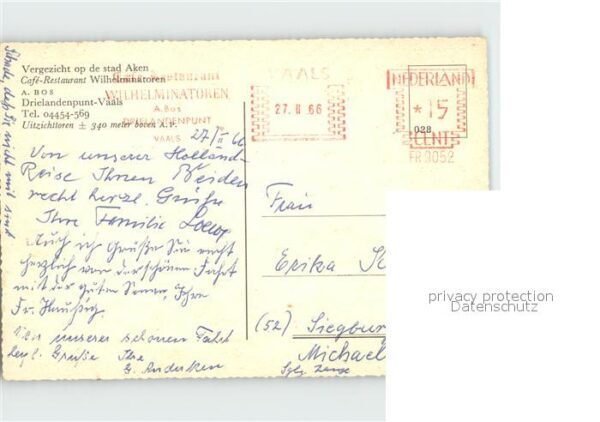 Vergezicht op de stad Aken
Café-Restaurant Wilhelminatoren
A. BOS
Drielandenpunt-Vaals
Tel. 04454-569
Uitzichttoren ± 340 meter boven A.P.
WILHELMINATOREN
A. Bos
DRIELANDENPUNT
VAALS
VAALS
27. II 66
NEDERLAND
*15
028
CENT
FR 9052
27/II 66
Von unserer Holland-
Reise Ihnen Beiden
recht herzl. Grüße
Ihre Familie
Auch ich Grüße Sie recht
herzlich von der schönen Fahrt
mit der guten Ihre
Fr.
Von unserer schönen Fahrt
herzl. Grüße Ihre
G.
Schade, daß Sie nicht mit sind
Frau
Erika
(52) Siegbur
Michael
privacy protection
Datenschutz